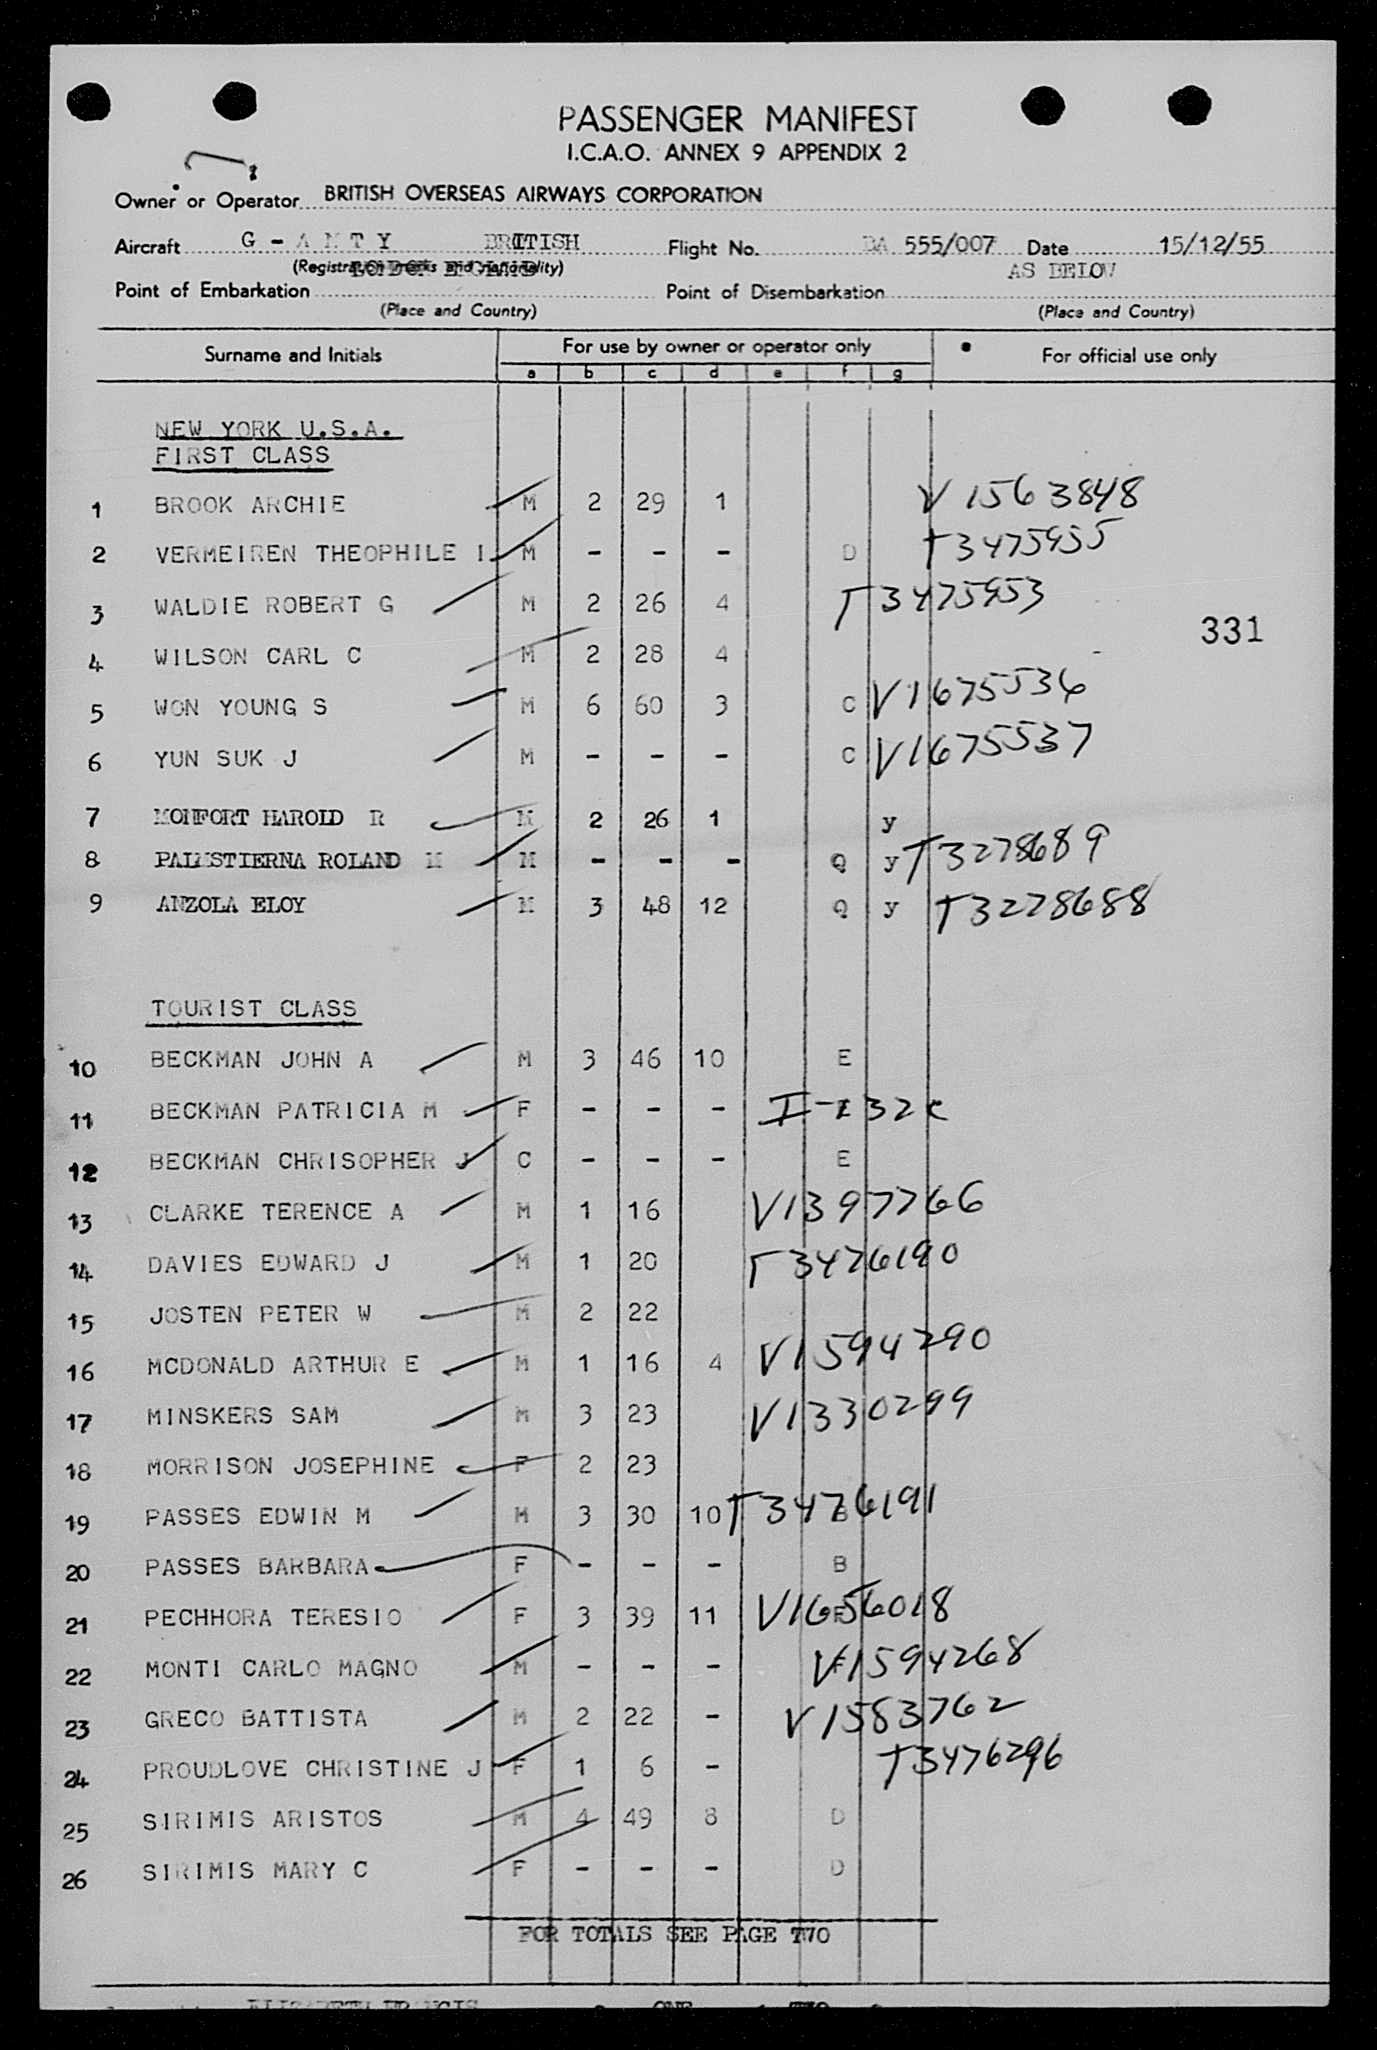 PASSENGER MANIFEST
I.C.A.O. ANNEX 9 APPENDIX 2
Owner or Operator BRITISH OVERSEAS AIRWAYS CORPORATION
Aircraft G - A M T Y BRITISH Flight No. BA 555/007 Date 15/12/55
(Registration marks and nationality) LONDON ENGLAND AS BELOW
Point of Embarkation Point of Disembarkation
(Place and Country) (Place and Country)
Surname and Initials For use by owner or operator only For official use only
a b c d e f g
NEW YORK U.S.A.
FIRST CLASS
1 BROOK ARCHIE M 2 29 1 V 1563848
2 VERMEIREN THEOPHILE I M - - - D T3475955
3 WALDIE ROBERT G M 2 26 4 T3475953
331
4 WILSON CARL C M 2 28 4
5 WON YOUNG S M 6 60 3 C V1675536
6 YUN SUK J M - - - C V1675537
7 MONFORT HAROLD R M 2 26 1 y
8 PALMSTIERNA ROLAND M M - - - Q y T3278689
9 ANZOLA ELOY M 3 48 12 Q y T3278688
TOURIST CLASS
10 BECKMAN JOHN A M 3 46 10 E
11 BECKMAN PATRICIA M F - - -
12 BECKMAN CHRISOPHER J C - - - E
13 CLARKE TERENCE A M 1 16 V1397766
14 DAVIES EDWARD J M 1 20 T3476190
15 JOSTEN PETER W M 2 22
16 MCDONALD ARTHUR E M 1 16 4 V1594290
17 MINSKERS SAM M 3 23 V1330299
18 MORRISON JOSEPHINE F 2 23
19 PASSES EDWIN M M 3 30 10 B T3476191
20 PASSES BARBARA F - - - B
21 PECHHORA TERESIO F 3 39 11 V1656018
22 MONTI CARLO MAGNO M - - - V1594268
23 GRECO BATTISTA M 2 22 - V1583762
24 PROUDLOVE CHRISTINE J F 1 6 - T3476296
25 SIRIMIS ARISTOS M 4 49 8 D
26 SIRIMIS MARY C F - - - D
FOR TOTALS SEE PAGE TWO